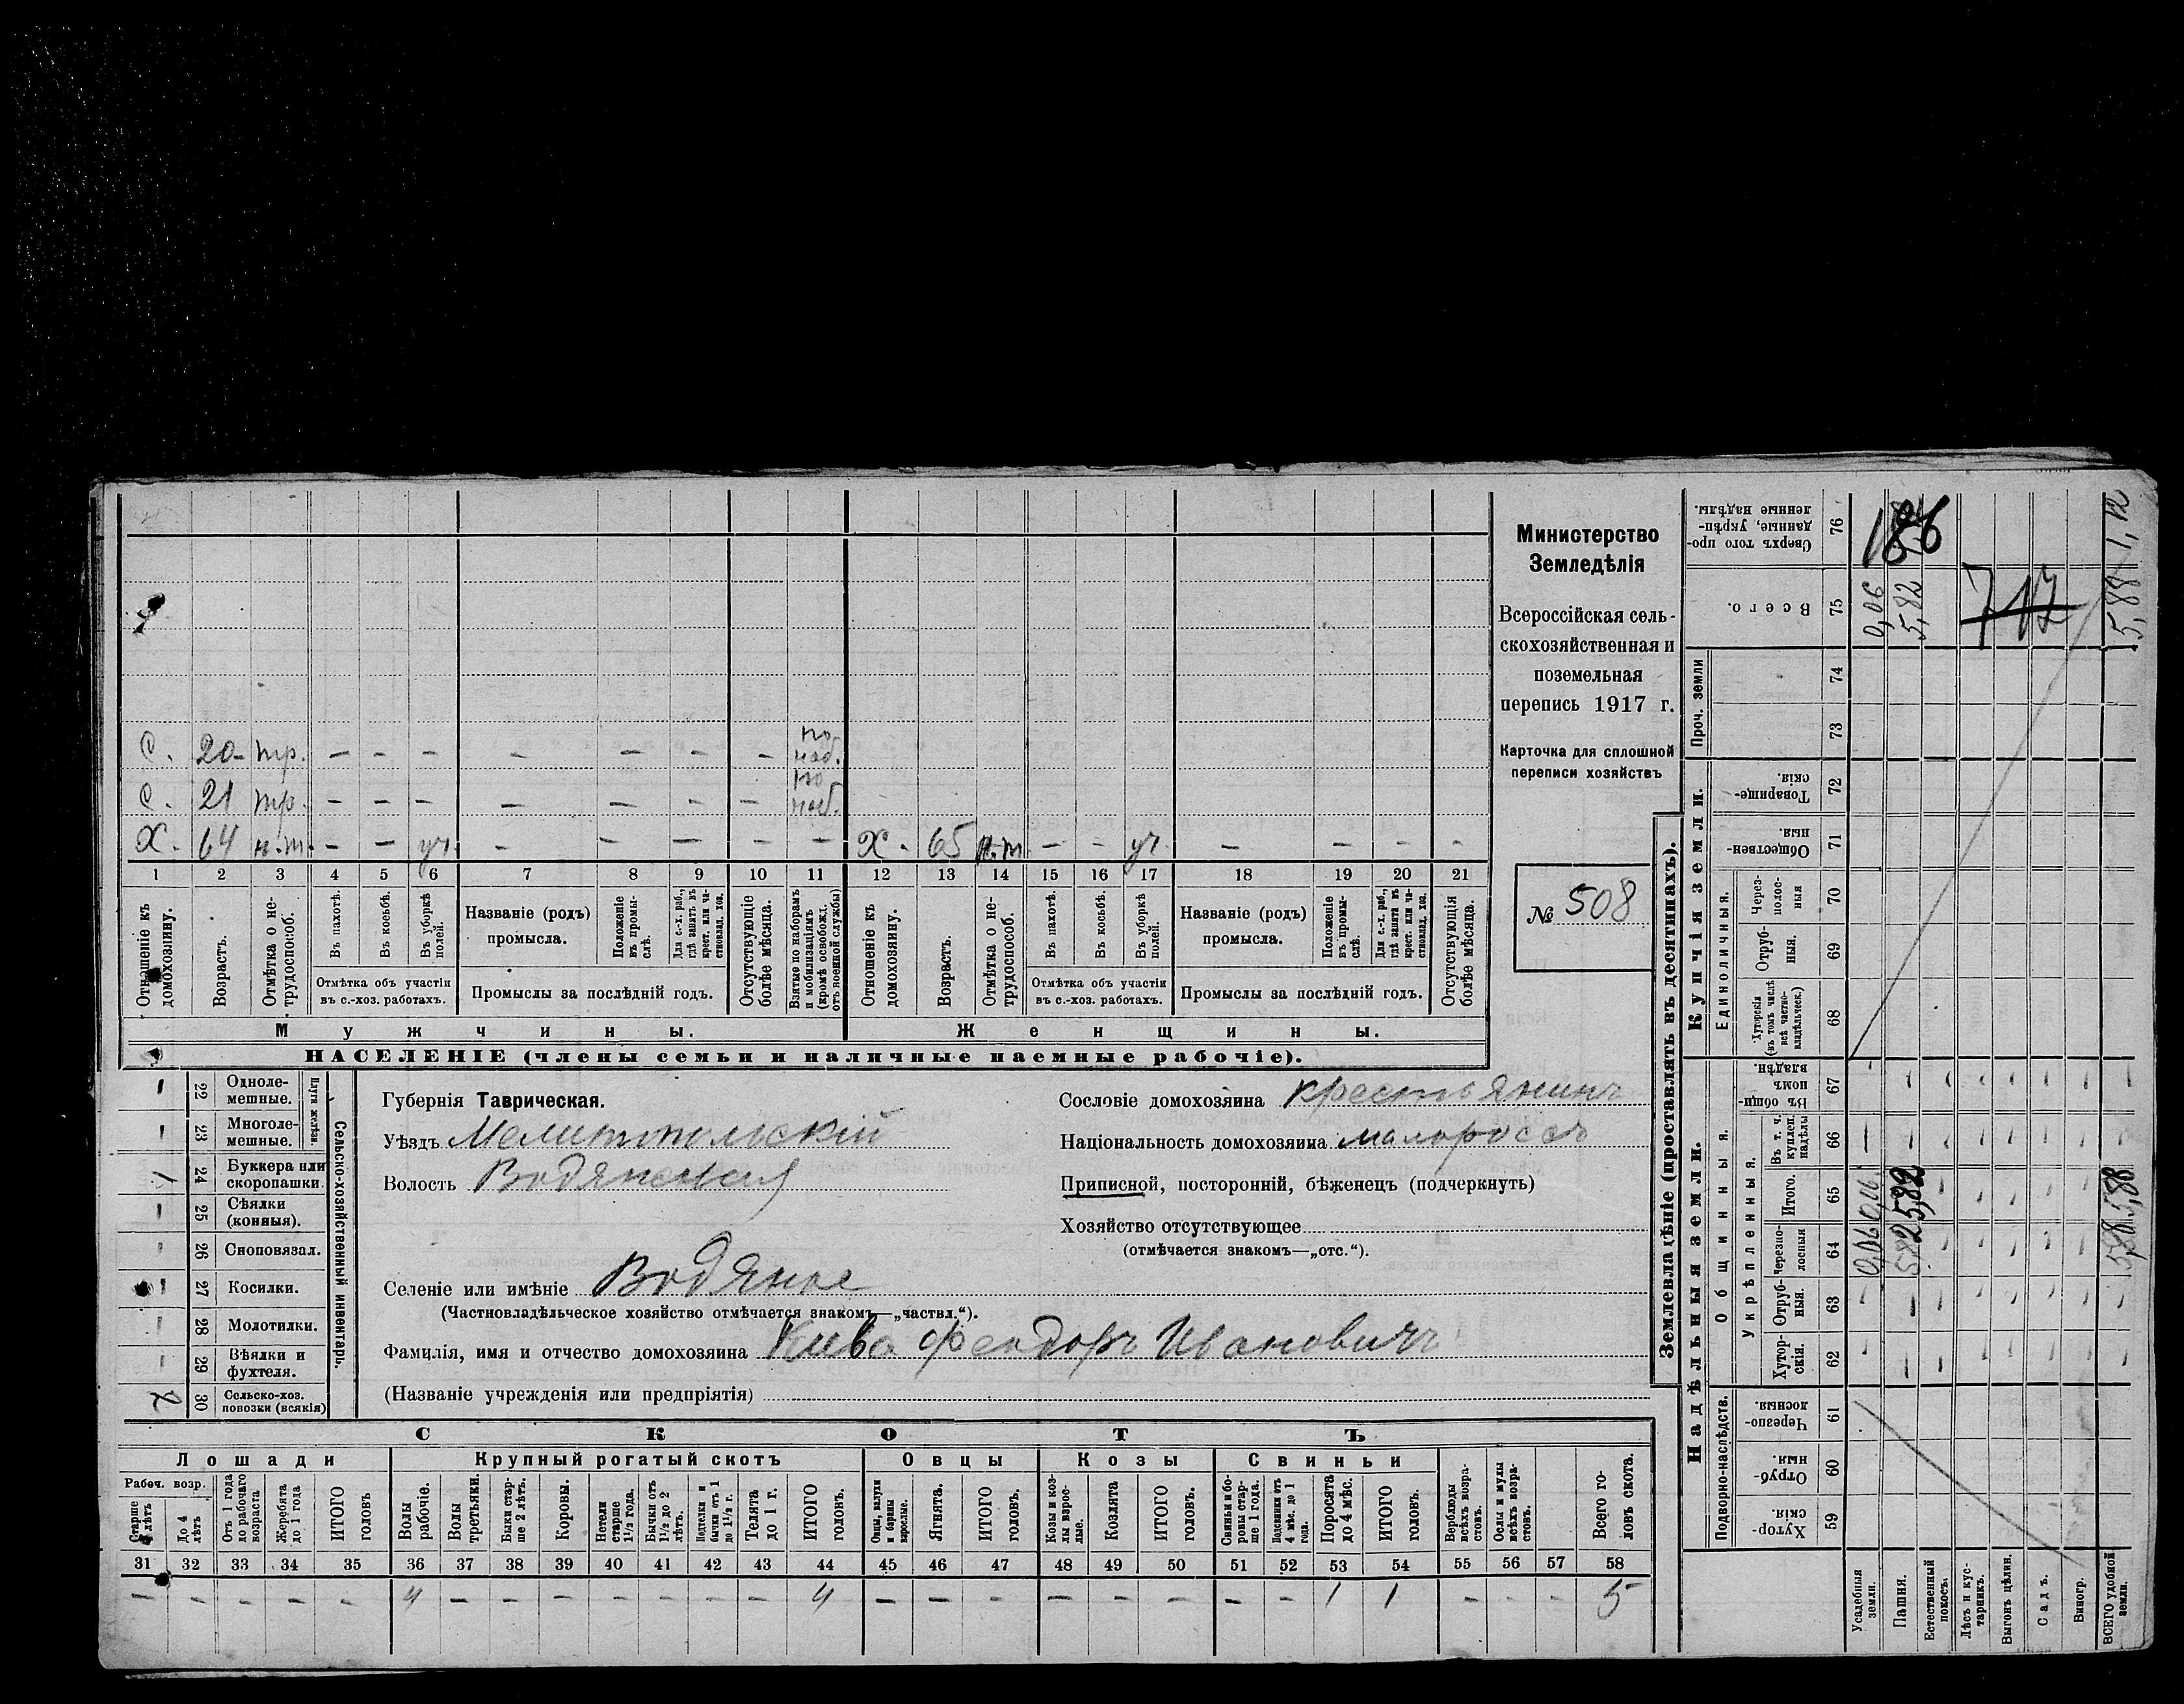 С. 20 тр. — — — — — — — по моб.
С. 21 тр. — — — — — — — по моб.
Х. 64 н.т. — — уч. — — — — — Х. 65 н.т. — — уч. — — — —
1 2 3 4 5 6 7 8 9 10 11 12 13 14 15 16 17 18 19 20 21
Отношеніе къ домохозяину.
Возрастъ.
Отмѣтка о нетрудоспособ.
Въ пахотѣ.
Въ косьбѣ.
Въ уборкѣ полей.
Отмѣтка объ участіи
въ с.-хоз. работахъ.
Названіе (родъ)
промысла.
Положеніе въ промыслѣ.
Для с.-х. раб., гдѣ занятъ въ крест. или частновлад. хоз.
Промыслы за послѣдній годъ.
Отсутствующіе болѣе мѣсяца.
Взятые по наборамъ и мобилизаціямъ (кромѣ освобожд. отъ военной службы)
Отношеніе къ домохозяину.
Возрастъ.
Отмѣтка о нетрудоспособ.
Въ пахотѣ.
Въ косьбѣ.
Въ уборкѣ полей.
Отмѣтка объ участіи
въ с.-хоз. работахъ.
Названіе (родъ)
промысла.
Положеніе въ промыслѣ.
Для с.-х. раб., гдѣ занятъ въ крест. или частновлад. хоз.
Промыслы за послѣдній годъ.
Отсутствующія болѣе мѣсяца.
Мужчины. Женщины.
НАСЕЛЕНІЕ (члены семьи и наличные наемные рабочіе).
Министерство
Земледѣлія
Всероссійская сель-
скохозяйственная и
поземельная
перепись 1917 г.
Карточка для сплошной
переписи хозяйствъ
№ 508
Сельско-хозяйственный инвентарь.
Плуги желѣзн.
22 Одноле-
мешные. —
23 Многоле-
мешные. —
24 Буккера или
скоропашки. 1
25 Сѣялки
(конныя). —
26 Сноповязал. —
27 Косилки. —
28 Молотилки. —
29 Вѣялки и
фухтеля. —
30 Сельско-хоз.
повозки (всякія) 2
Губернія Таврическая.
Уѣздъ Мелитопольскій
Волость Водянская
Селеніе или имѣніе Водяное
(Частновладѣльческое хозяйство отмѣчается знакомъ—„частвл.“).
Фамилія, имя и отчество домохозяина Кива Феодоръ Ивановичъ
(Названіе учрежденія или предпріятія)
Сословіе домохозяина крестьянинъ
Національность домохозяина малороссъ
Приписной, посторонній, бѣженецъ (подчеркнуть)
Хозяйство отсутствующее
(отмѣчается знакомъ—„отс.“).
СКОТЪ
Лошади Крупный рогатый скотъ Овцы Козы Свиньи
Рабоч. возр.
Старше 4 лѣтъ
До 4 лѣтъ
Отъ 1 года до рабочаго возраста
Жеребята до 1 года
ИТОГО головъ
Волы рабочіе.
Волы третьяки.
Быки старше 2 лѣтъ.
Коровы.
Нетели старше 1½ года.
Бычки отъ 1½ до 2 лѣтъ.
Подтелки и бычки отъ 1 до 1½ г.
Телята до 1 г.
ИТОГО головъ.
Овцы, валухи и бараны взрослые.
Ягнята.
ИТОГО головъ.
Козы и козлы взрослые.
Козлята
ИТОГО головъ.
Свиньи и боровы старше 1 года.
Подсвинки отъ 4 мѣс. до 1 года.
Поросята до 4 мѣс.
ИТОГО головъ.
Верблюды всѣхъ возрастовъ.
Ослы и мулы всѣхъ возрастовъ.
Всего головъ скота.
31 32 33 34 35 36 37 38 39 40 41 42 43 44 45 46 47 48 49 50 51 52 53 54 55 56 57 58
— — — — — 4 — — — — — — — 4 — — — — — — — — 1 1 — — — 5
Землевладѣніе (проставлять въ десятинахъ).
Надѣльныя земли. Купчія земли. Проч. земли
Подворно-наслѣдств. Общинныя. Единоличныя.
Укрѣпленныя.
59 Хуторскія.
60 Отрубныя.
61 Черезполосныя.
62 Хуторскія.
63 Отрубныя.
64 Черезполосныя 0,06 5,82 5,88
65 Итого. 0,06 5,82 5,88
66 Въ т. ч. куплен. надѣлы
67 Въ общинномъ владѣн.
68 Хуторскія (въ томъ числѣ всѣ частновладѣльческ.)
69 Отрубныя.
70 Черезполосныя
71 Общественныя
72 Товарищескія.
73
74
75 Всего. 0,06 5,82 717 5,88
76 Сверхъ того проданные, укрѣпленные надѣлы. 186 1,12
Усадебныя земли.
Пашня.
Естественный покосъ.
Лѣсъ и кустарникъ.
Выгонъ цѣлин.
Садъ.
Виногр.
ВСЕГО удобной земли.